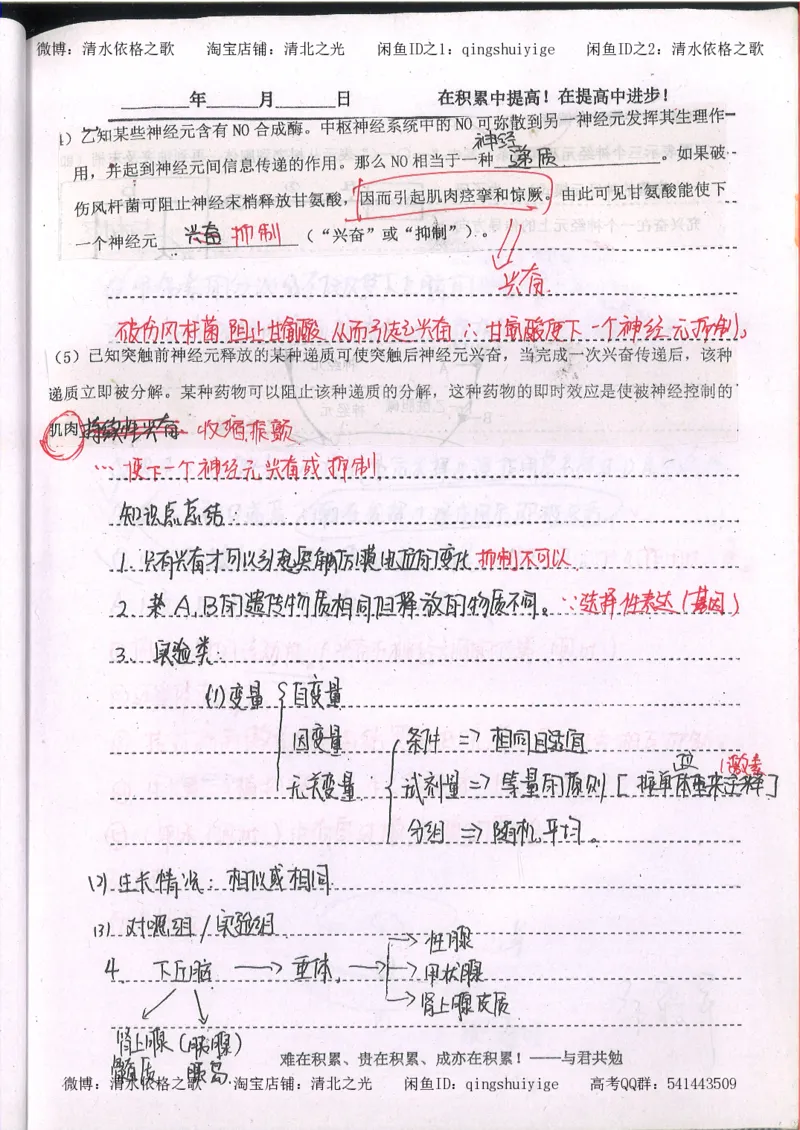 微博：清水依格之歌 淘宝店铺：清北之光 闲鱼ID之1：qingshuiyige 闲鱼ID之2：清水依格之歌
______年______月______日 在积累中提高！在提高中进步！
1）乙知某些神经元含有 NO 合成酶。中枢神经系统中的 NO 可弥散到另一神经元发挥其生理作
用，并起到神经元间信息传递的作用。那么 NO 相当于一种 神经递质 。如果破
伤风杆菌可阻止神经末梢释放甘氨酸，因而引起肌肉痉挛和惊厥。由此可见甘氨酸能使下
一个神经元 兴奋 抑制 （“兴奋”或“抑制”）。
兴奋
破伤风杆菌阻止甘氨酸从而引起兴奋∴甘氨酸使下一个神经元抑制。
（5）已知突触前神经元释放的某种递质可使突触后神经元兴奋，当完成一次兴奋传递后，该种
递质立即被分解。某种药物可以阻止该种递质的分解，这种药物的即时效应是使被神经控制的
肌肉 持续性兴奋 收缩振颤
使下一个神经元兴奋或抑制
知识点总结：
1. 只有兴奋才可以引起突触后膜电位的变化 抑制不可以
2. 若 A.B的遗传物质相同但释放的物质不同。∵选择性表达(基因)
3. 实验类：
(1)变量 { 自变量
因变量 条件 => 相同且适宜
无关变量 { 试剂量 => 等量的原则 [
分组 => 随机.平均。
(2) 生长情况：相似或相同
(3) 对照组/实验组
4. 下丘脑 → 垂体 → 性腺
→ 甲状腺
→ 肾上腺皮质
肾上腺 (胰腺)
髓质 胰岛
难在积累、贵在积累、成亦在积累！——与君共勉
微博：清水依格之歌 淘宝店铺：清北之光 闲鱼ID：qingshuiyige 高考QQ群：541443509